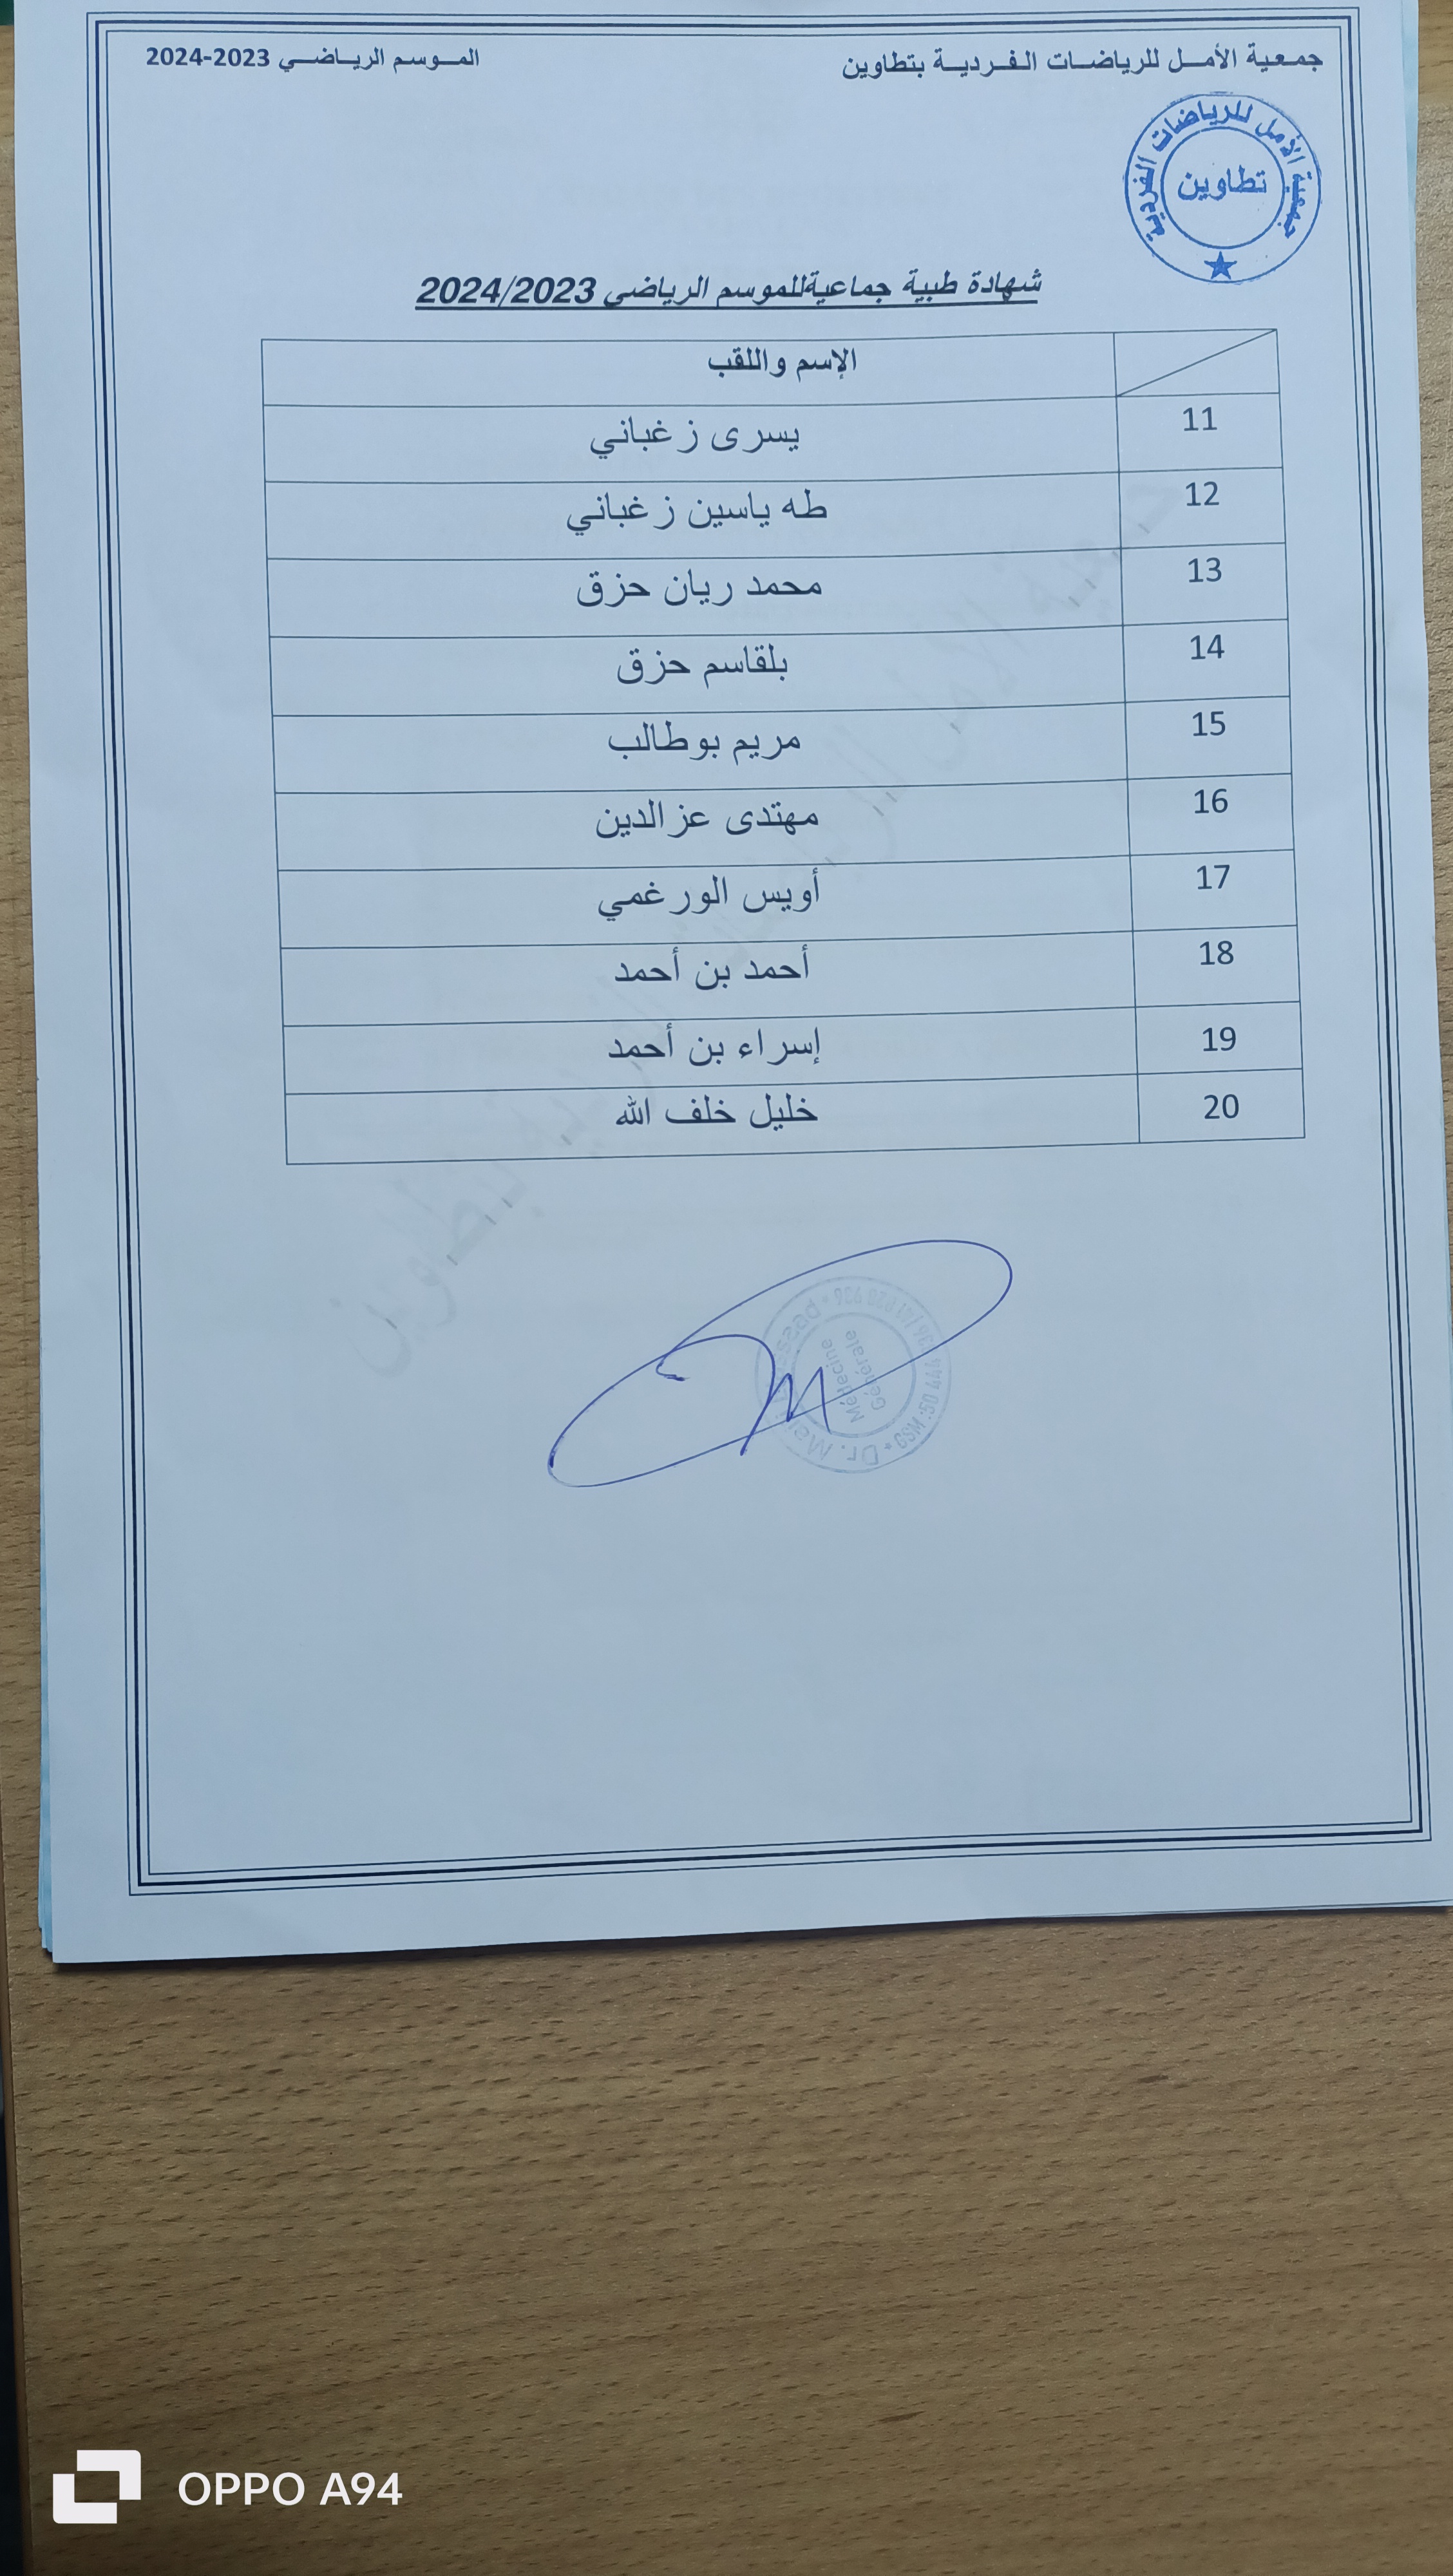 جمعية الأمل للرياضات الفردية بتطاوين
الموسم الرياضي 2023-2024
جمعية الأمل للرياضات الفردية
تطاوين
شهادة طبية جماعيةللموسم الرياضي 2024/2023
الإسم واللقب
11 يسرى زغباني
12 طه ياسين زغباني
13 محمد ريان حزق
14 بلقاسم حزق
15 مريم بوطالب
16 مهتدى عزالدين
17 أويس الورغمي
18 أحمد بن أحمد
19 إسراء بن أحمد
20 خليل خلف الله
جمعية الأمل للرياضات الفردية بتطاوين
Dr.
Médecine
Générale
GSM :50
OPPO A94